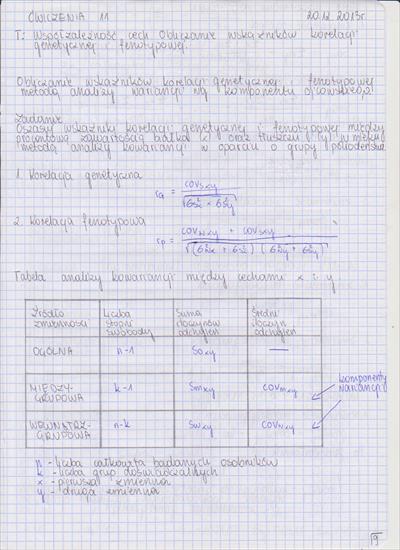 ĆWICZENIA 11 20.12.2013r.
T: Współzależność cech. Obliczanie wskaźników korelacji
genetycznej i fenotypowej.
Obliczanie wskaźników korelacji genetycznej i fenotypowej
metodą analizy wariancji na komponenty ojcowskie
Zadanie
Oszacuj wskaźniki korelacji genetycznej i fenotypowej między
procentową zawartością białka (x) oraz tłuszczu (y) w mleku
metodą analizy kowariancji w oparciu o grupy półrodzeństwa
1. Korelacja genetyczna
rG = covsxy / √(σ²sx × σ²sy)
2. Korelacja fenotypowa
rp = covwxy + covsxy / √((σ²wx + σ²sx) (σ²wy + σ²sy))
Tabela analizy kowariancji między cechami x i y
Źródło zmienności Liczba stopni swobody Suma iloczynów odchyleń Średni iloczyn odchyleń
OGÓLNA n-1 Soxy —
MIĘDZY-GRUPOWA k-1 Smxy covmxy
komponenty wariancji
WEWNĄTRZ-GRUPOWA n-k Swxy covwxy
n - liczba całkowita badanych osobników
k - liczba grup doświadczalnych
x - pierwsza zmienna
y - druga zmienna
9